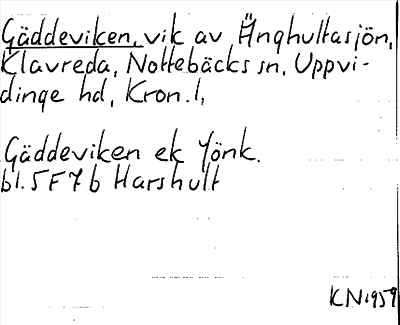 Gäddeviken, vik av Änghultasjön,
Klavreda, Nottebäcks sn, Uppvi-
dinge hd, Kron. l,
Gäddeviken ek Jönk.
bl. 5 F 7 b Harshult
KN 1959